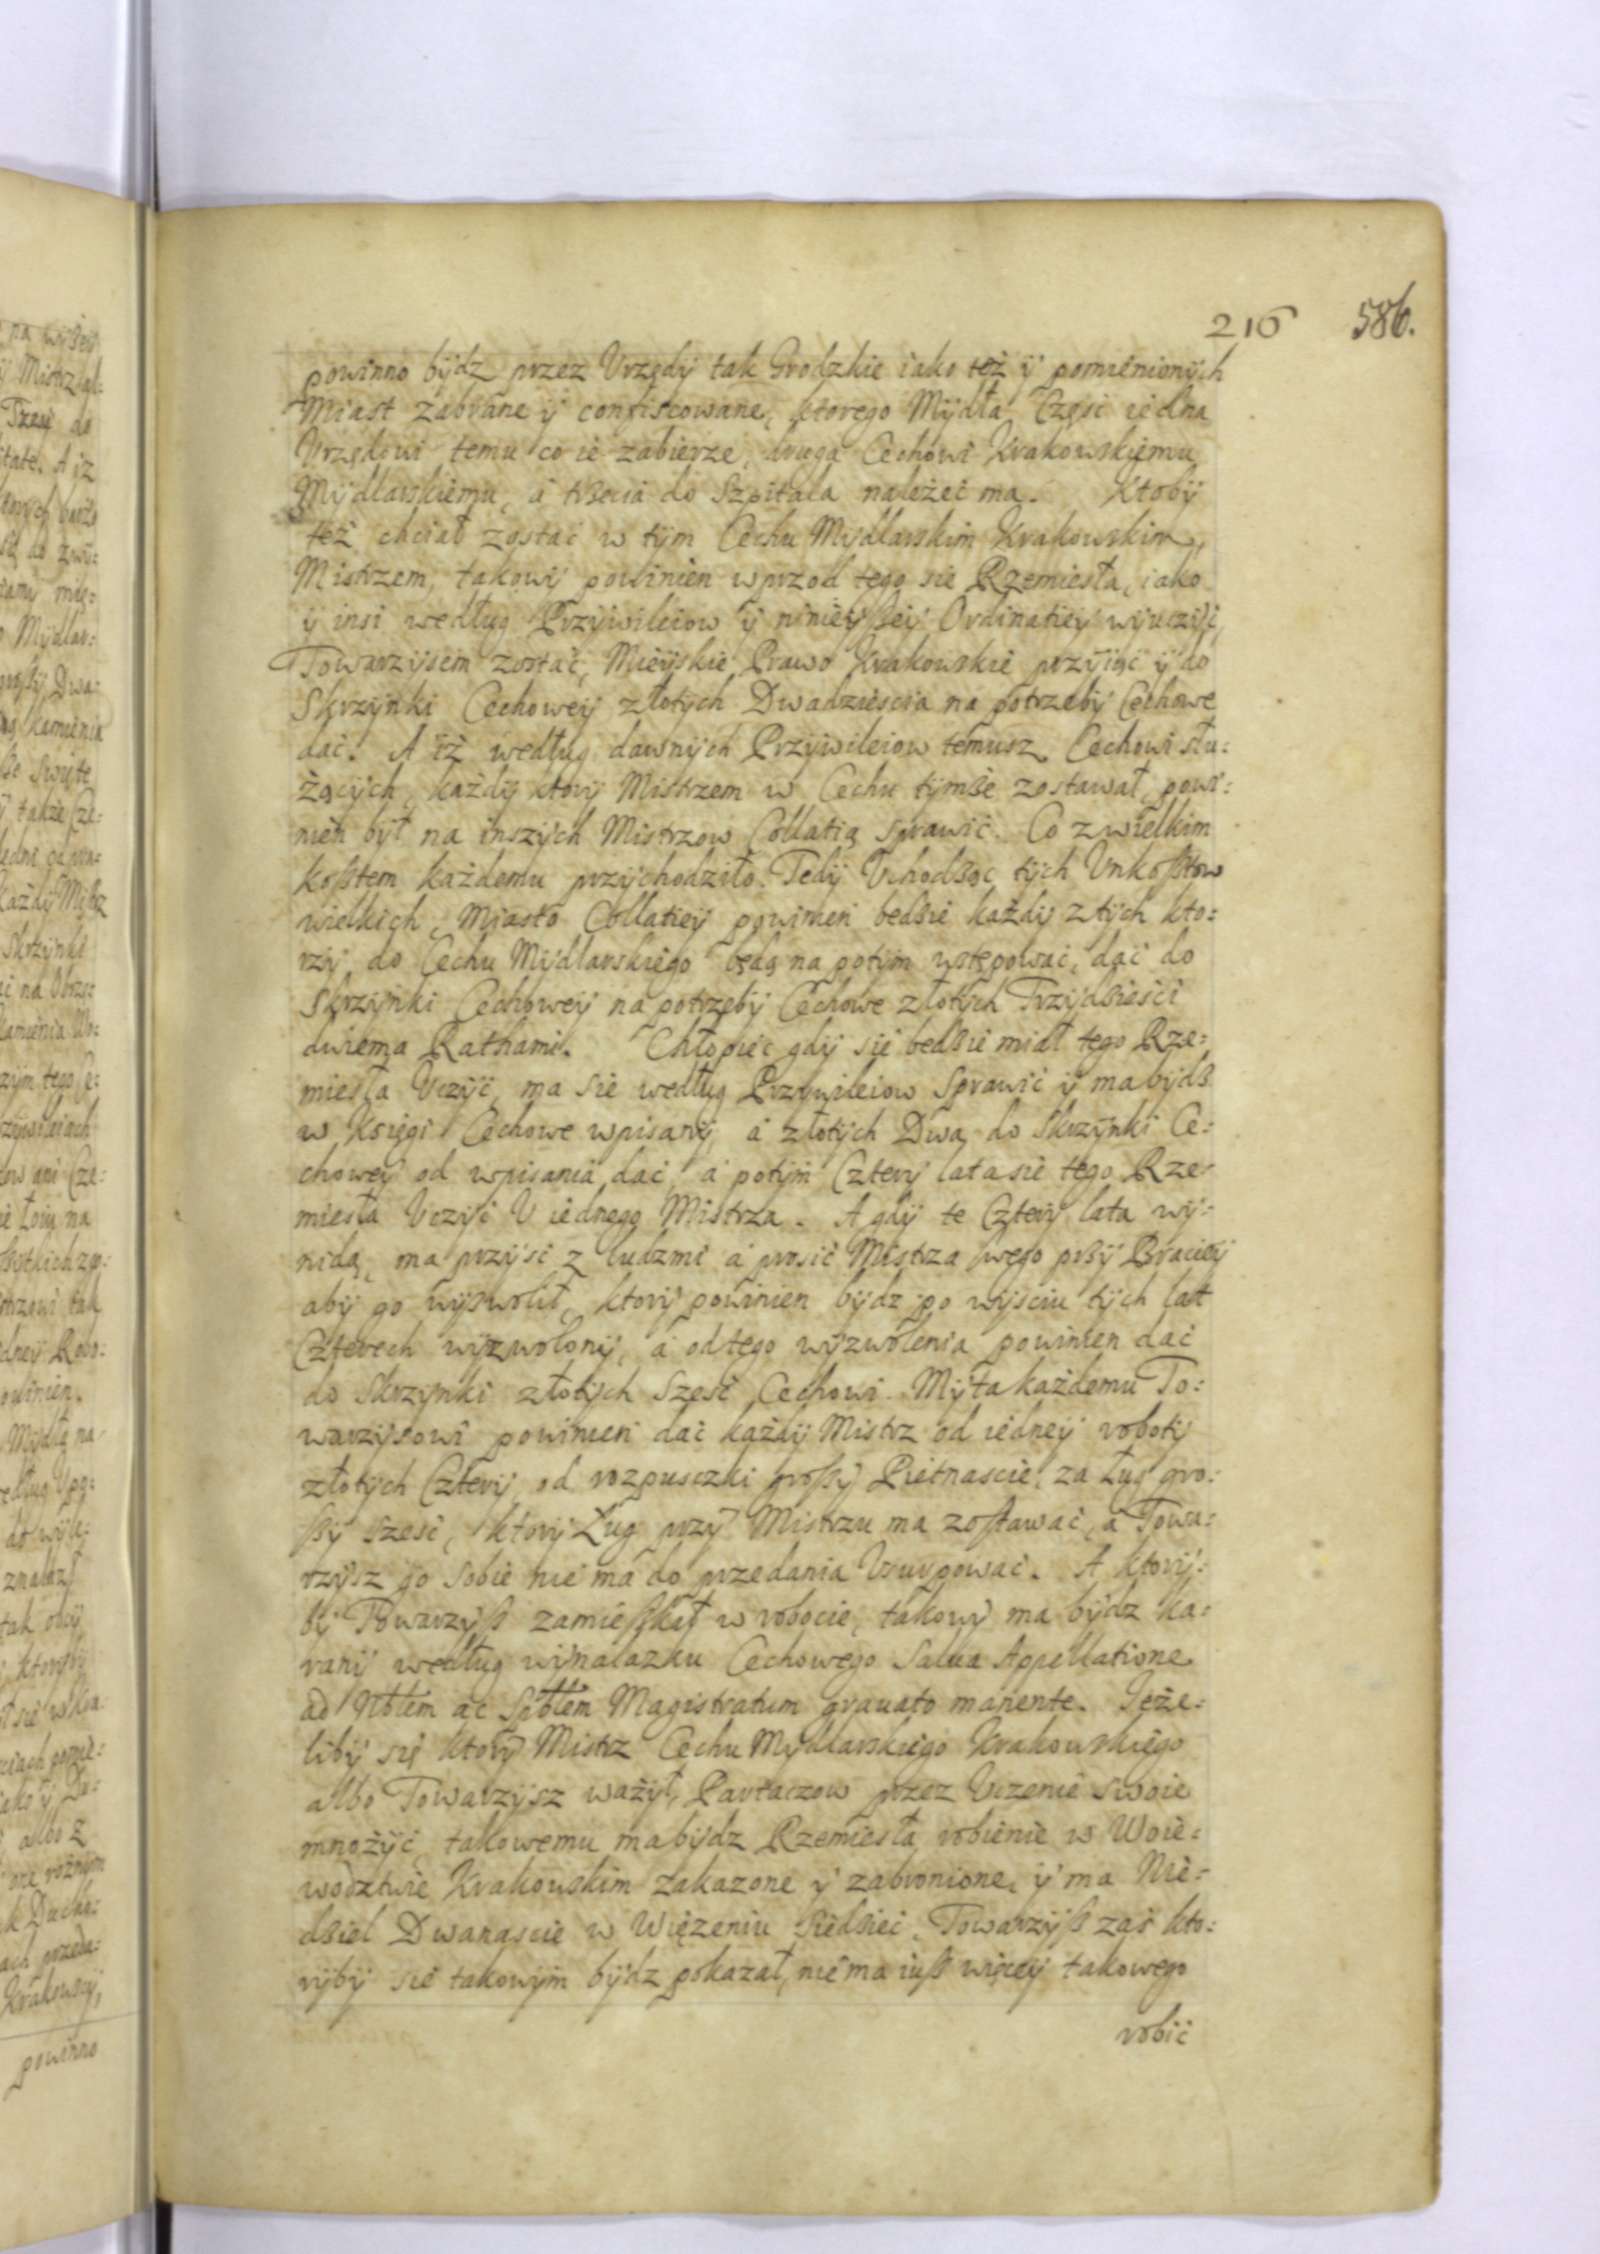 216 586.
powinno bydz przez Vrzędy tak Grodzkie iako też y pomienionych
Miast zabrane y confiscowane, ktorego Mydła Częsc iedna
Vrzędowi temu co ie zabierze, druga Cechowi Krakowskiemu
Mydlarskiemu, á trzecia do Szpitala należeć ma. Ktoby
też chciał zostać w tym Cechu Mydlarskim Krakowskim,
Mistrzem, takowy powinien wprzod tego sie Rzemiesła, iako
y insi według Przywileiow y ninieyßey Ordinatiey wyuczyć,
Towarzysem zostać, Mieyskie Prawo Krakowskie przyiąć y do
Skrzynki Cechowey złotych Dwadzieścia na potrzeby Cechowe
dać. A iż według dawnych Przywileiow temusz Cechowi słu:
żących, każdy ktory Mistrzem w Cechu tymże zostawał, powi:
nien był na inszych Mistrzow Collatią sprawić. Co z wielkim
koßtem każdemu przychodziło. Tedy Vchodząc tych Vnkoßtow
wielkich, Miasto Collatiey powinien bedzie każdy z tych kto:
rzy do Cechu Mydlarskiego będą na potym wstępować, dać do
Skrzynki Cechowey na potrzeby Cechowe złotych Trzydzieści
dwiema Rathami. Chłopiec gdy sie bedzie miał tego Rze:
miesła Vczyć, ma sie według Przywileiow sprawić y ma bydz
w Księgi Cechowe wpisany, á złotych Dwa do Skrzynki Ce:
chowey od wpisania dać, á potym Cztery lata sie tego Rze:
miesła Vczyć V iednego Mistrza. A gdy te Cztery lata wy:
nidą, ma przyść z ludzmi á prosić Mistrza swego przy Braciey
aby go wyzwolił, ktory powinien bydz po wyściu tych lat
Czterech wyzwolony, á od tego wyzwolenia powinien dać
do Skrzynki złotych Sześć Cechowi. Myta każdemu To:
warzysowi powinien dać każdy Mistrz od iedney roboty
złotych Cztery, od rozpusczki großy Pietnascie, za Ług gro:
ßy Sześć, ktory Ług przy Mistrzu ma zostawać, á Towa:
rzysz go sobie nie ma do przedania Vsurpować. A ktory:
by Towarzyß zamießkał w robocie, takowy ma bydz ka:
rany według wynalazku Cechowego Salua Appellatione
ad Nobłem ac Spbłem Magistratum grauato manente. Jeże:
liby się ktory Mistrz Cechu Mydlarskiego Krakowskiego
albo Towarzysz ważył, Partaczow przez Vczenie swoie
mnożyć, takowemu ma bydz Rzemiesła robienie w Woie:
wodztwie Krakowskim zakazone y zabronione, y ma Nie:
dziel Dwanascie w Więzeniu siedzieć, Towarzyß zaś kto:
ryby sie takowym bydz pokazał, nie ma iuß więcey takowego
robić